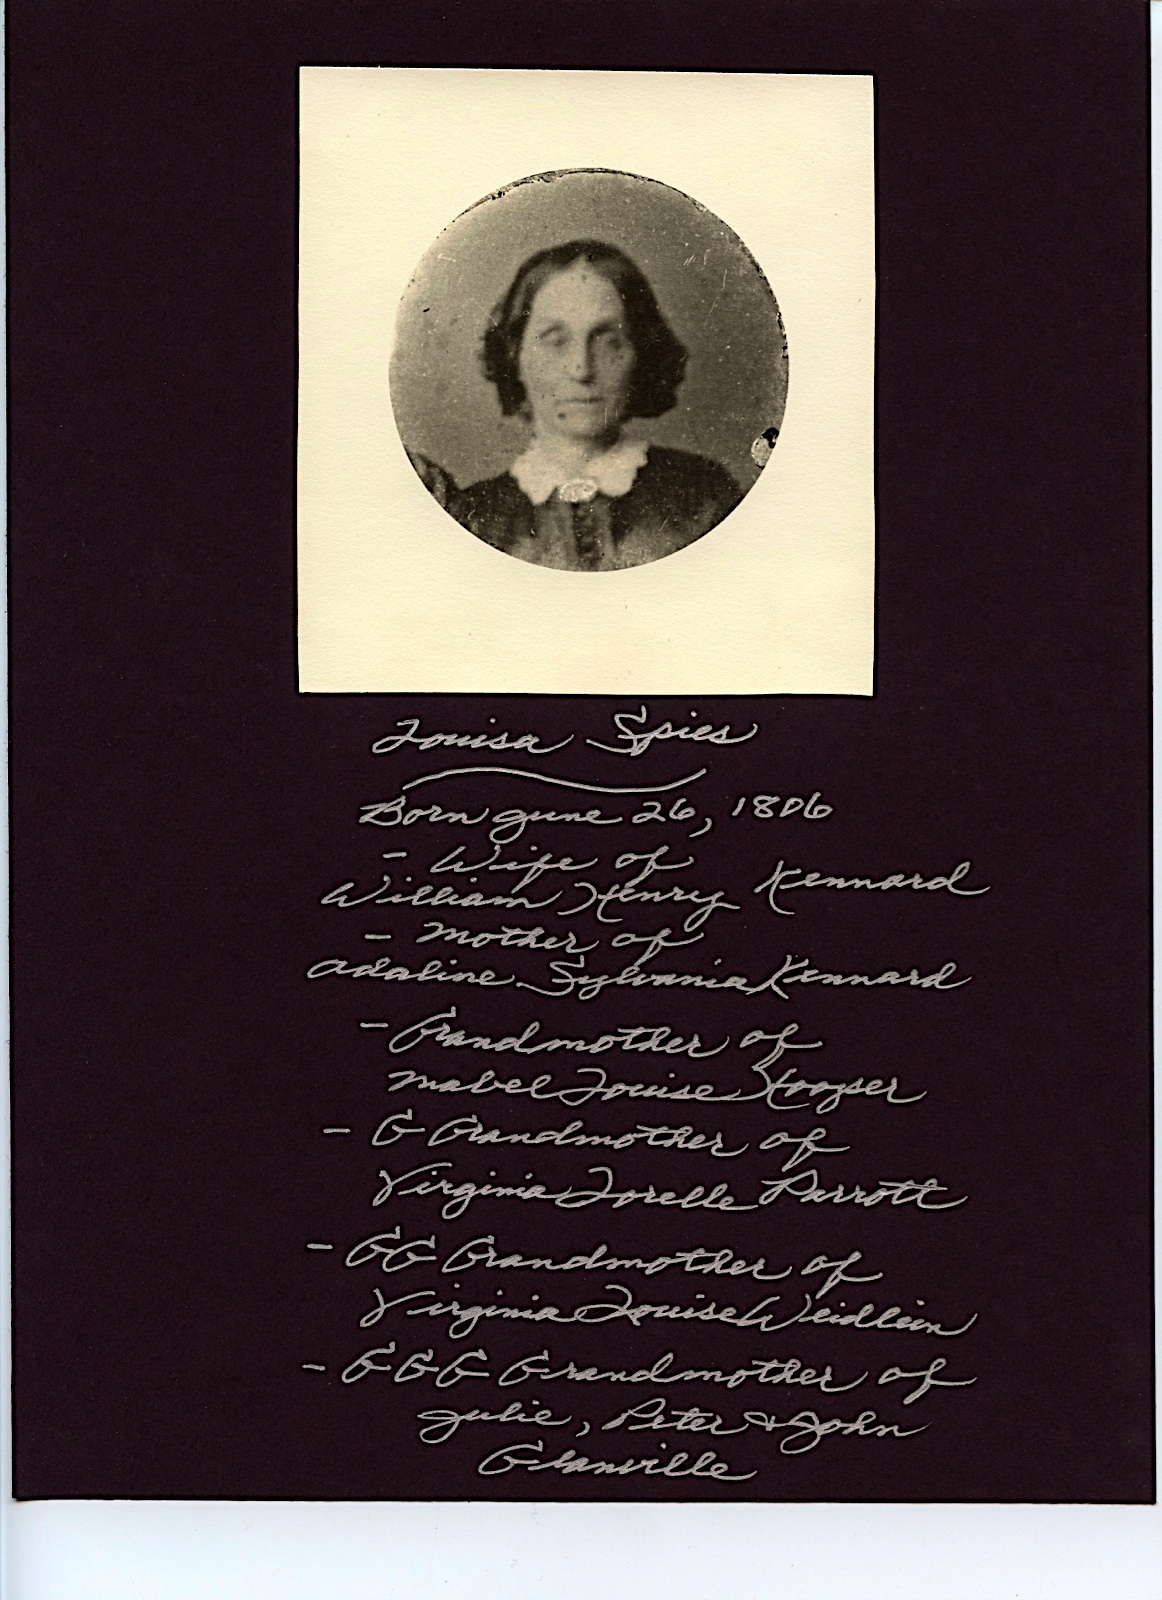 Louisa Spies
Born June 26, 1806
- Wife of
William Henry Kennard
- Mother of
Adaline Sylvania Kennard
- Grandmother of
Mabel Louise
- G Grandmother of
Virginia Lorelle Parrott
- GG Grandmother of
Virginia Louise Weidlein
- GGG Grandmother of
Julie, Peter & John
Glanville